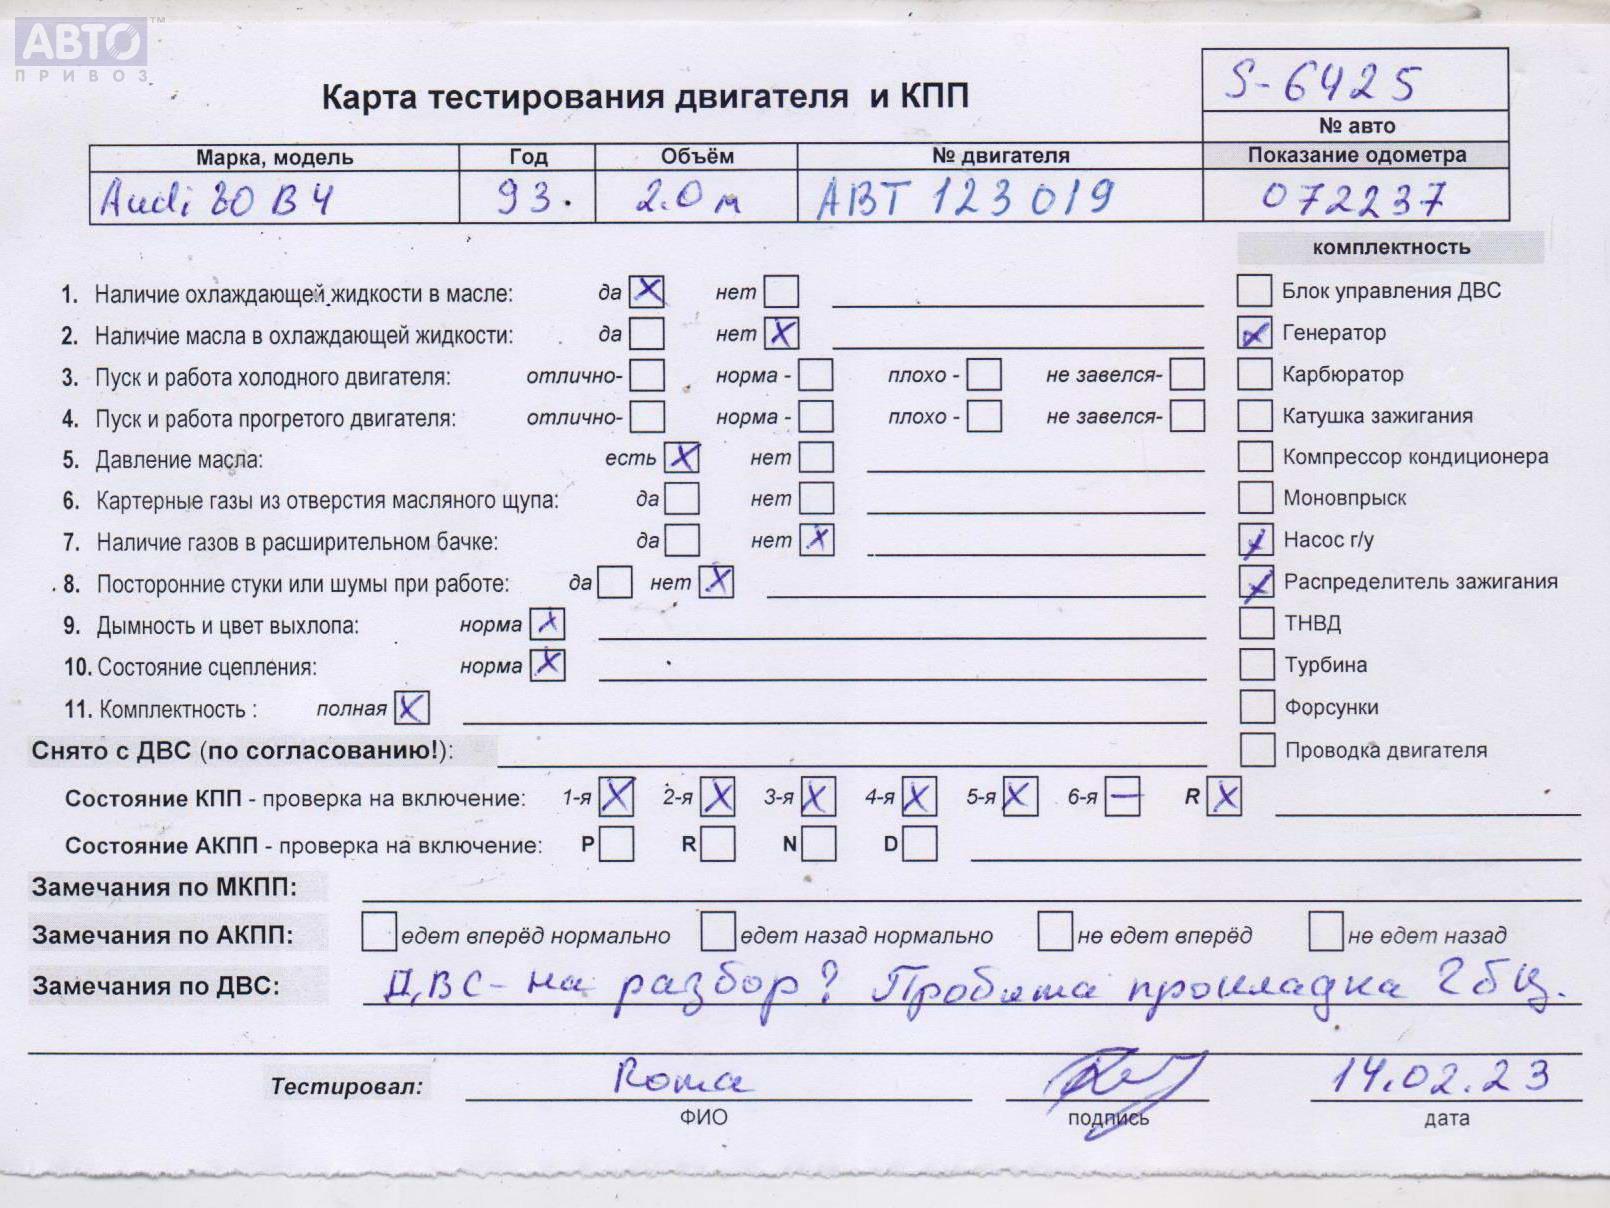 АВТО TM
ПРИВОЗ
Карта тестирования двигателя и КПП
S-6425
№ авто
Марка, модель Год Объём № двигателя Показание одометра
Audi 80 B4 93. 2.0 м ABT 123019 072237
комплектность
1. Наличие охлаждающей жидкости в масле: да X нет
Блок управления ДВС
2. Наличие масла в охлаждающей жидкости: да нет X
Генератор
3. Пуск и работа холодного двигателя: отлично- норма - плохо - не завелся-
Карбюратор
4. Пуск и работа прогретого двигателя: отлично- норма - плохо - не завелся-
Катушка зажигания
5. Давление масла: есть X нет
Компрессор кондиционера
6. Картерные газы из отверстия масляного щупа: да нет
Моновпрыск
7. Наличие газов в расширительном бачке: да нет X
Насос г/у
8. Посторонние стуки или шумы при работе: да нет X
Распределитель зажигания
9. Дымность и цвет выхлопа: норма X
ТНВД
10. Состояние сцепления: норма X
Турбина
11. Комплектность : полная X
Форсунки
Снято с ДВС (по согласованию!):
Проводка двигателя
Состояние КПП - проверка на включение: 1-я X 2-я X 3-я X 4-я X 5-я X 6-я — R X
Состояние АКПП - проверка на включение: P R N D
Замечания по МКПП:
Замечания по АКПП: едет вперёд нормально едет назад нормально не едет вперёд не едет назад
Замечания по ДВС: ДВС - на разбор? Пробита прокладка ГБЦ.
Тестировал: Рома 14.02.23
ФИО подпись дата